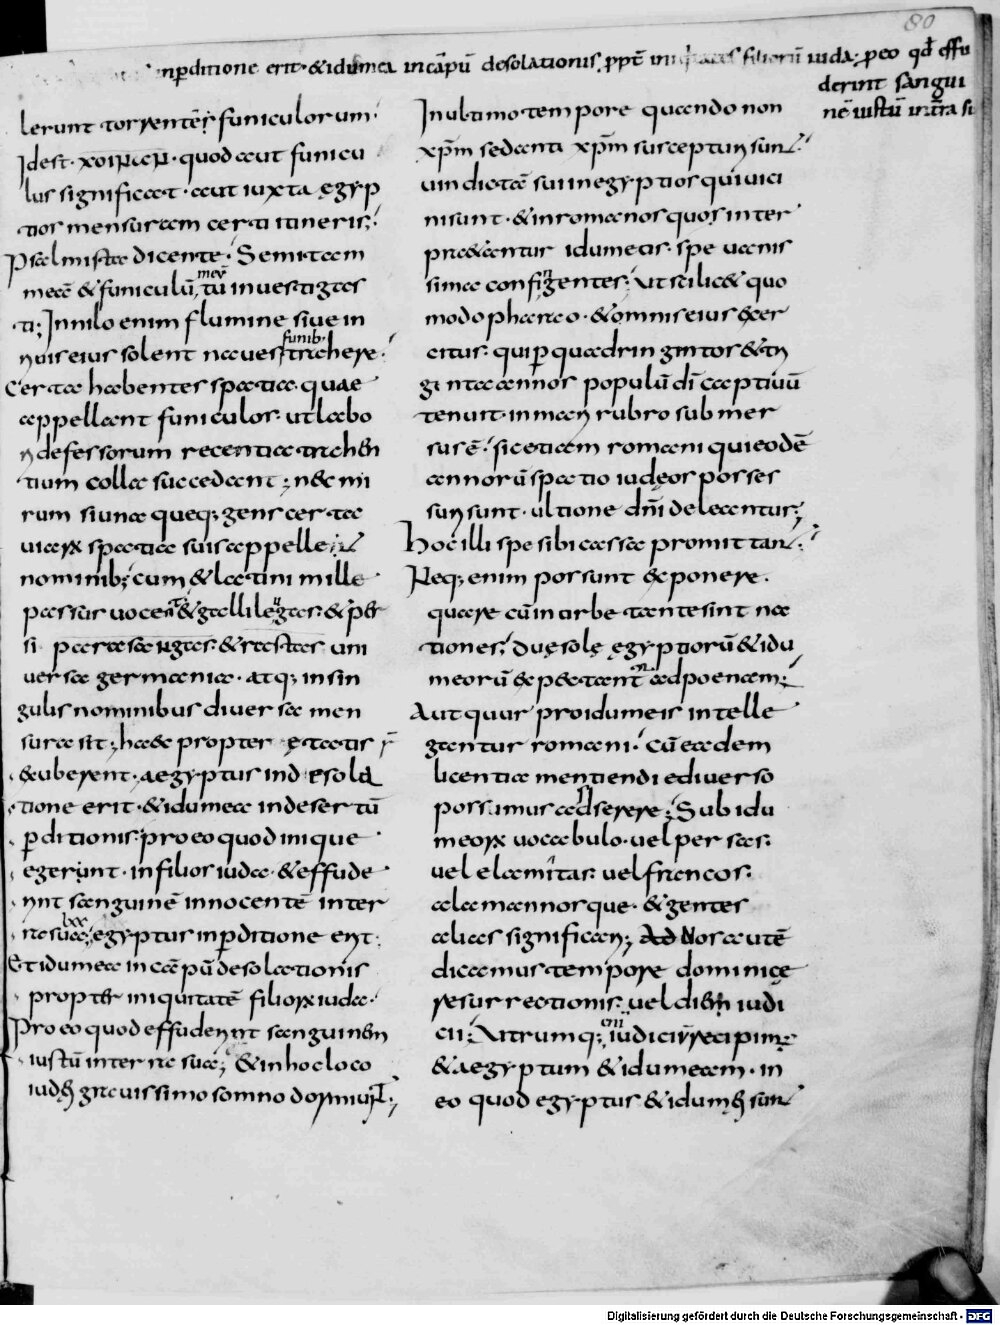 80
inꝑditione erit·&idumea incāpū desolationis, ꝓpt̄ filiorū iuda; ꝓeo qđ effu
derint sangui
nē iustū in t̄ra su
lerunt torrentēs funiculorum·
Idest· χοιμαμ·quodaut funicu
lus significat·aut iuxta ęgyp
tios mensuram certi itineris;
Psalmista dicente·Semitam
meā & funiculū meū tu inuestigas
ti; Innilo enim flumine siue in
riuis eius solent naues funib· trahere·
Certa habentes spatia·quae
appellant funiculos·utlabo
ri defessorum recentia trahen
tium colla succedant; nec mi
rum siuna queq; gens certa
uiarum spatia suis appellet
nominib; cum & latini mille
passus uocent & galli legas·& per
si parasangas·& rastas uni
uersa germania·atq; insin
gulis nominibus diuersa men
sura sit; haec propter ętatis
&uberent·aegyptus ind esola
tione erit·&idumea indesertū
ꝑditionis·proeo quod inique
egerunt·infilios iuda·&effude
rint sanguinē innocentē inter
ra sua; lxx egyptus inꝑditione erit·
Et idumea incāpū desolationis
propter iniquitatē filiorum iuda·
Pro eo quod effuderunt sanguinem
iustū interra sua; & inhocloco
iudęi grauissimo somno dormiunt;
Inultimo tempore quando non
xp̄m sedanti xp̄m suscepturi sunt
uindictā sui inegyptios quiuici
ni sunt·&inromanos quos inter
praetantur idumeos·spe uanis
sima confingentes; Ut scilicet quo
modo pharao·&omnis eius exer
citus·quiꝑ quadringintos &tri
ginta annos populū dī captiuū
tenuit·inmari rubro submer
sus ē·sic etiam romani quieodē
annorū spatio iudęos posses
suri sunt·ultione dn̄i deleantur;
Hoc illi spe sibi cassa promittant
Neq; enim possunt exponere·
quare cū in orbe tantę sint na
tiones, duę solę ęgyptiorū &idu
meorū expetant adpoenam;
Aut quur proidumeis intelle
gantur romani·cū eadem
licentia mentiendi ediuerso
possimus adserere; Sub idu
meorum uocabulo·uel persas·
uel elamitas·uel francos·
alamannosque·&gentes
alias significari; Nos autē
dicamus tempore dominicę
resurrectionis·uel diem iudi
cii; Utrumq; iudiciū recipere
&aegyptum &idumeam·in
eo quod egyptus &idumęi sunt
Digitalisierung gefördert durch die Deutsche Forschungsgemeinschaft - DFG